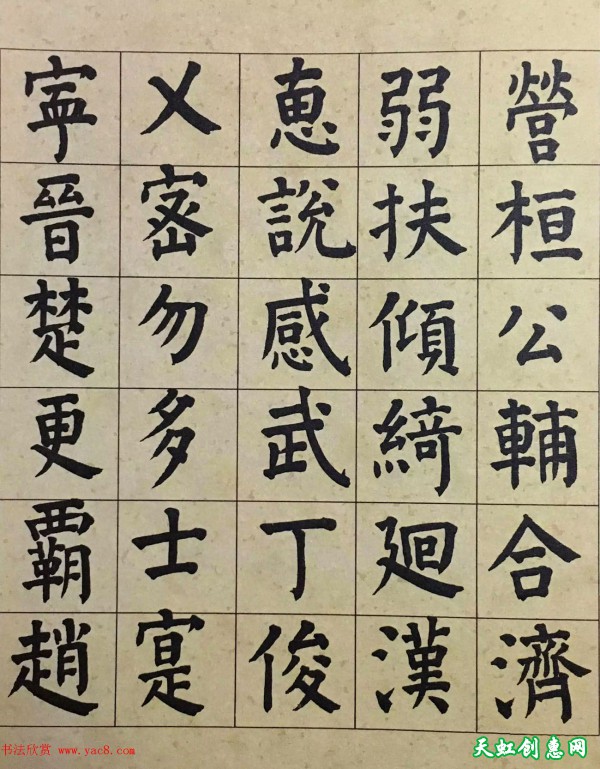 營桓公輔合濟
弱扶傾綺廻漢
惠說感武丁俊
乂密勿多士寔
寧晉楚更霸趙
书法欣赏 www.yac8.com
天虹创惠网